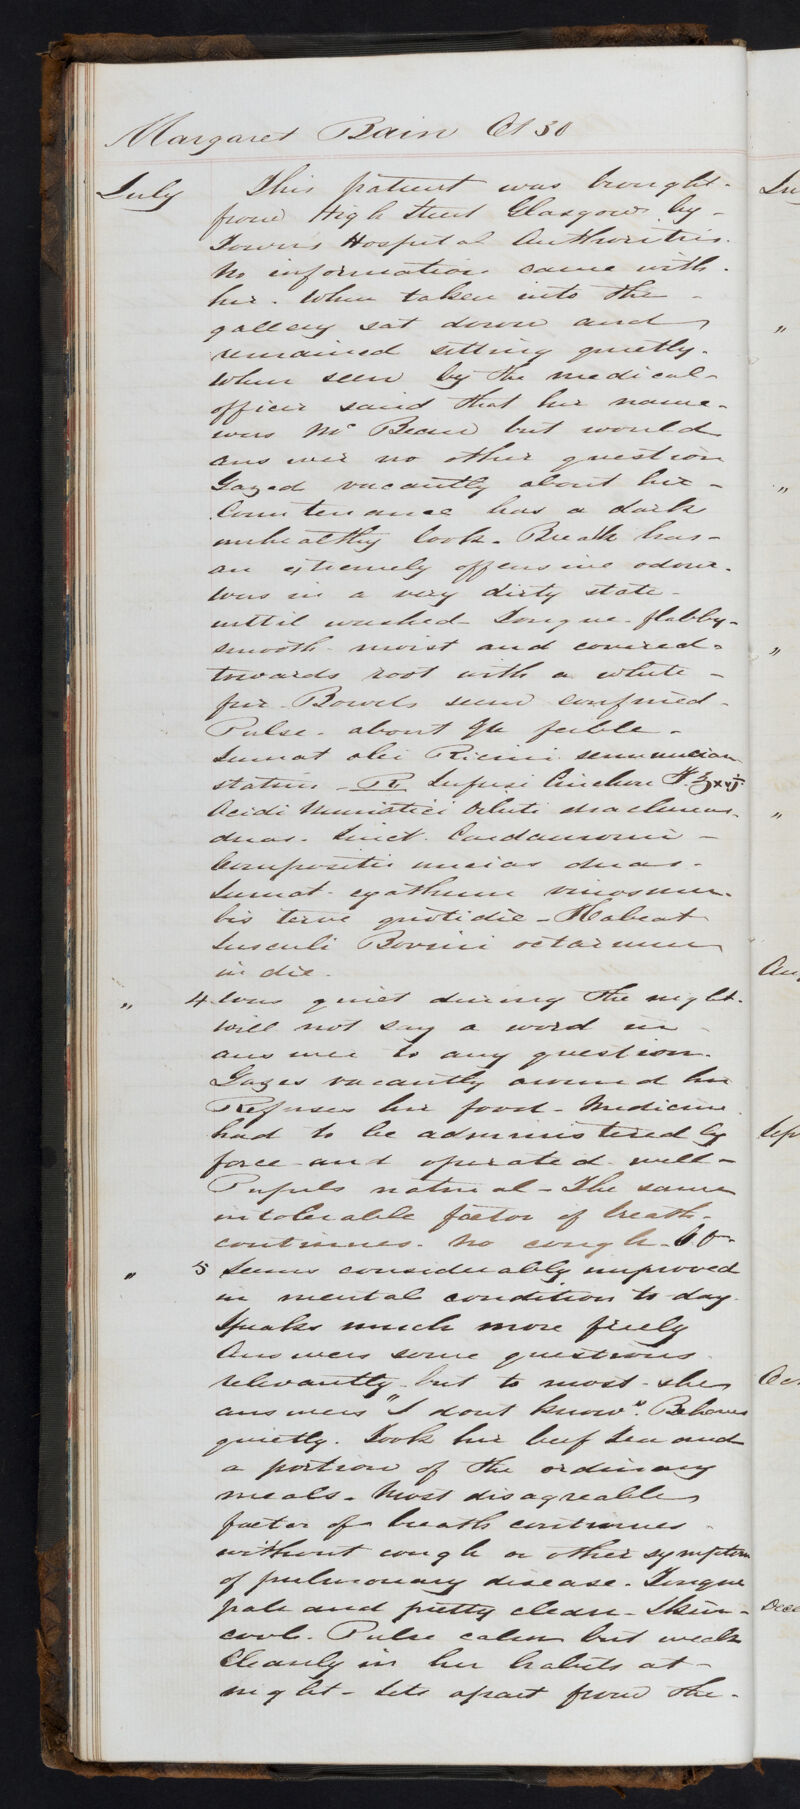 Margaret Bain Æt 30
July This patient was brought
from High Street Glasgow by
Towns Hospital Authorities.
No information came with
her. When taken into the
gallery sat down and
remained sitting quietly.
When seen by the medical
officer said that her name
was Mc Bean but would
answer no other question
Gazed vacantly about her
Countenance has a dark
unhealthy look. Breath has
an extremely offensive odour.
Was in a very dirty state
until washed. Tongue flabby
smooth moist and covered
towards root with a white
fur. Bowels seem confined
Pulse about 94 feeble.
Sumat olei Ricini semiunciam
statim. R Infusi Cinchon ℥xvj
Acidi Muriatici diluti drachmas
duas. Tinct. Cardamomi
Compositi uncias duas.
Sumat cyathum vinosum
bis terve quotidie. Habeat
Jusculi Bovini octarium
in die.
" 4 Was quiet during the night.
Will not say a word in
answer to any question.
Gazes vacantly around her
Refuses her food. Medicine
had to be administered by
force and operated well
Pupils natural. The same
intolerable foetor of breath
continues. No cough.
" 5 Seems considerably improved
in mental condition to day.
Speaks much more freely
Answers some questions
relevantly but to most she
answers "I dont know". Behaves
quietly. Took her beef tea and
a portion of the ordinary
meals. Most disagreable
foetor of breath continues
without cough or other symptom
of pulmonary disease. Tongue
pale and pretty clean. Skin
cool. Pulse calm but weak
Cleanly in her habits at
night. Sits apart from the
"
"
"
"